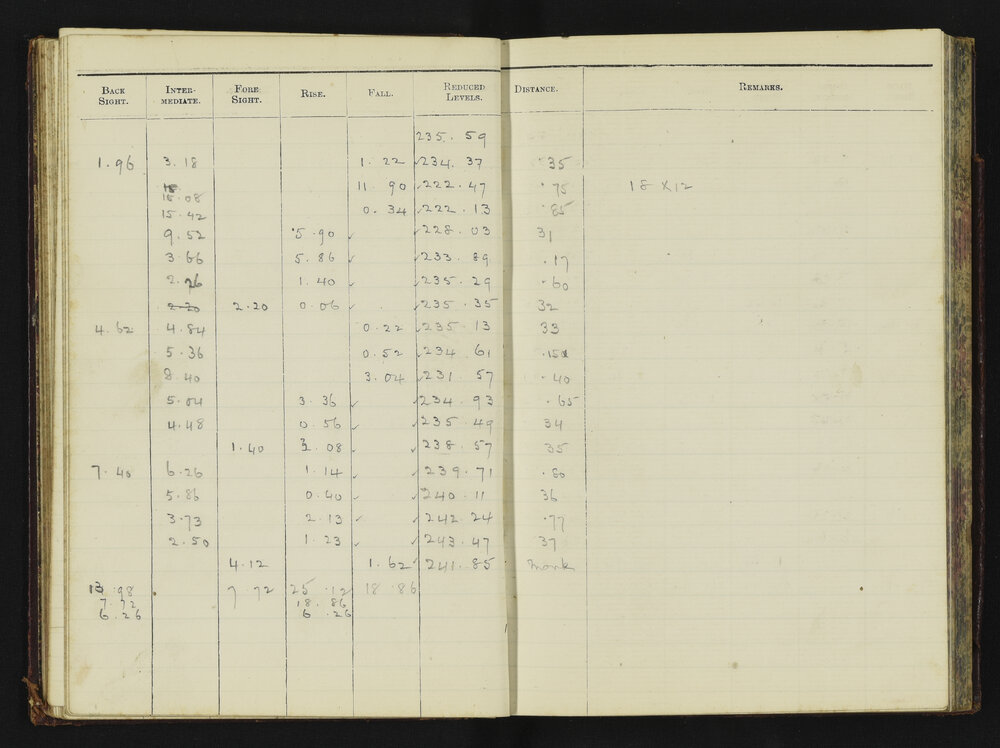 BACK SIGHT. INTER-MEDIATE. FORE SIGHT. RISE. FALL. REDUCED LEVELS. DISTANCE. REMARKS.
235. 59
1.96 3.18 1.22 234. 37 .35
15.08 11.90 222.47 .75 18 X12
15.42 0.34 222.13 .85
9.52 5.90 228.03 31
3.66 5.86 233.89 .17
2.26 1.40 235.29 .60
2.20 2.20 0.06 235.35 32
4.62 4.84 0.22 235.13 33
5.36 0.52 234.61 .15
8.40 3.04 231.57 .40
5.04 3.36 234.93 .65
4.48 0.56 235.49 34
1.40 3.08 238.57 35
7.40 6.26 1.14 239.71 .80
5.86 0.40 240.11 36
3.73 2.13 242.24 .77
2.50 1.23 243.47 37
4.12 1.62 241.85 mark
13.98 7.72 25.12 18.86
7.72 18.86
6.26 6.26